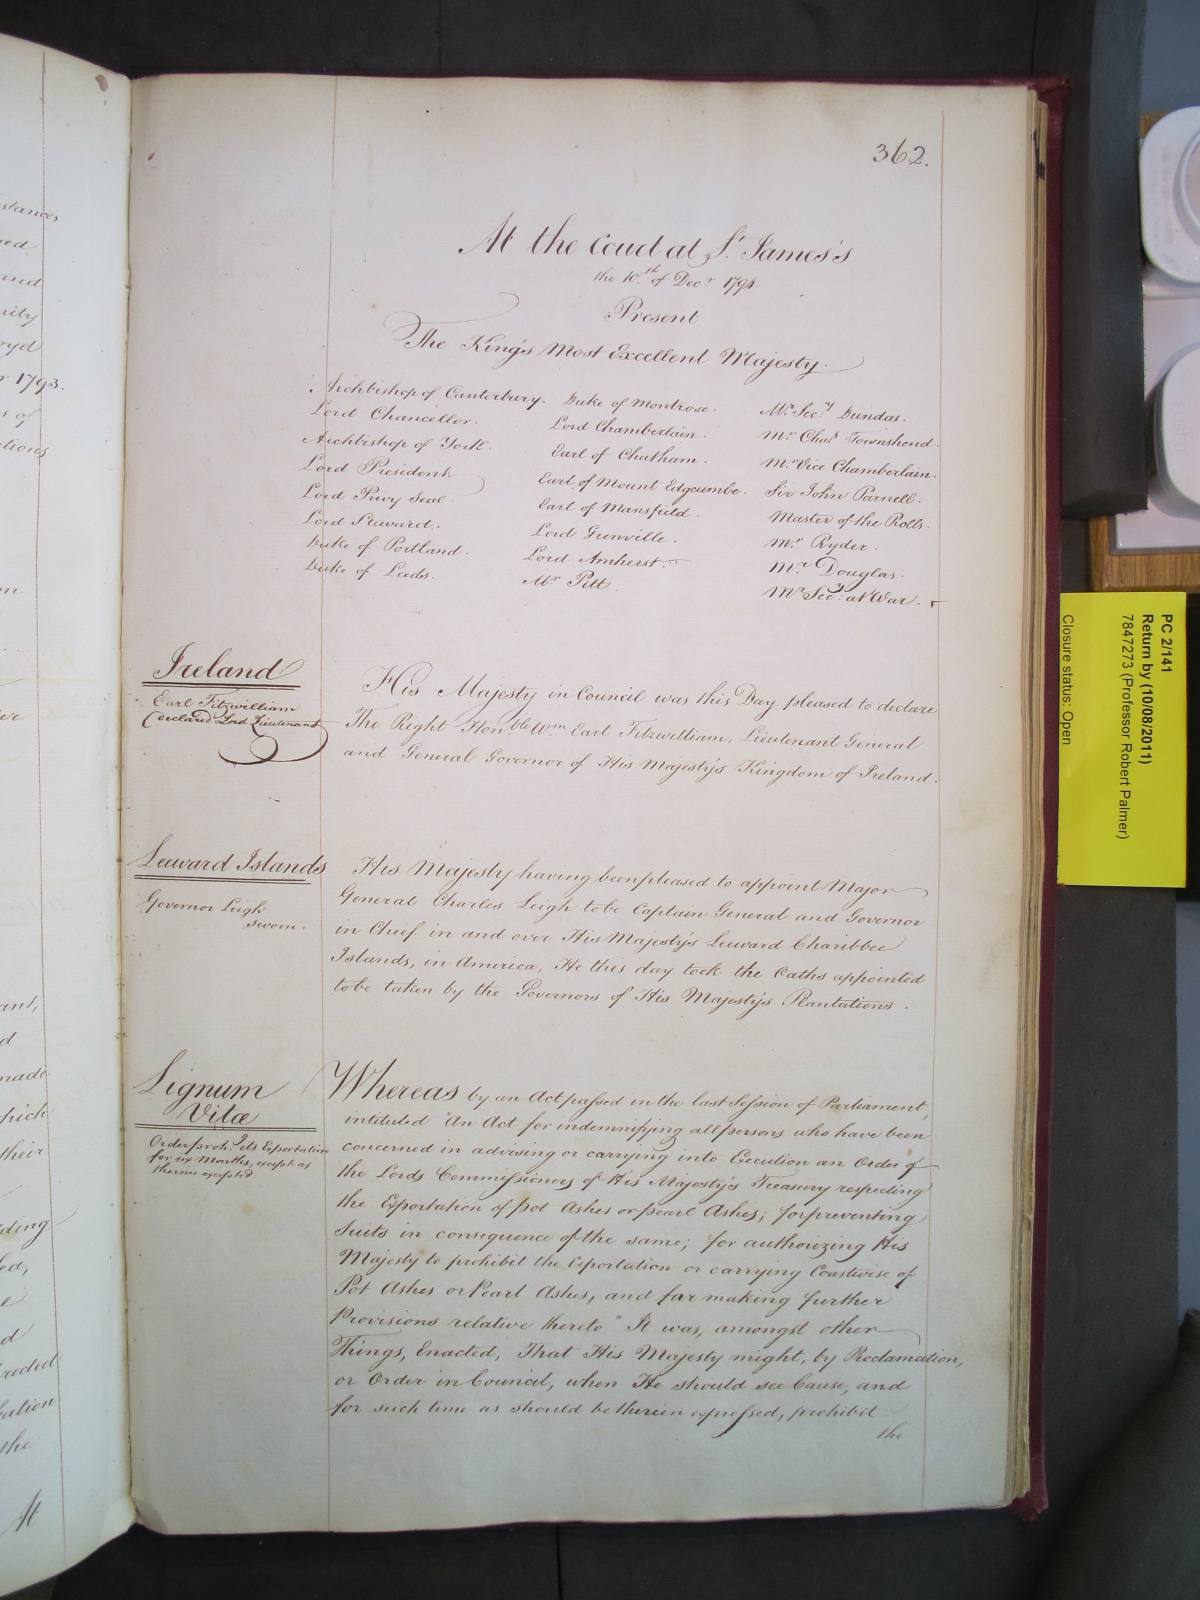 362.
At the Court at St. James's
the 10th of Decr 1794
Present
The King's Most Excellent Majesty.
Archbishop of Canterbury.
Lord Chancellor.
Archbishop of York.
Lord President
Lord Privy Seal
Lord Steward.
Duke of Portland.
Duke of Leeds.
Duke of Montrose.
Lord Chamberlain.
Earl of Chatham.
Earl of Mount Edgcumbe.
Earl of Mansfield.
Lord Grenville.
Lord Amherst.
Mr Pitt
Mr Secy Dundas.
Mr Chas Townshend.
Mr Vice Chamberlain.
Sir John Parnell.
Master of the Rolls.
Mr Ryder.
Mr Douglas.
Mr Secy at War.
Ireland
Earl Fitzwilliam
declared Lord Lieutenant
His Majesty in Council was this Day pleased to declare
The Right Honble Wm Earl Fitzwilliam, Lieutenant General
and General Governor of His Majesty's Kingdom of Ireland.
Leeward Islands
Governor Leigh
sworn.
His Majesty having been pleased to appoint Major
General Charles Leigh to be Captain General and Governor
in Chief in and over His Majesty's Leeward Charibbee
Islands, in America, He this day took the Oaths appointed
to be taken by the Governors of His Majesty's Plantations.
Lignum
Vitæ
Order proh.g its Exportation
for six Months, except as
therein excepted
Whereas by an Act passed in the last Session of Parliament,
intituled "An Act for indemnifying all persons who have been
concerned in advising or carrying into Execution an Order of
the Lords Commissioners of His Majesty's Treasury respecting
the Exportation of Pot Ashes or Pearl Ashes; for preventing
Suits in consequence of the same; for authorizing His
Majesty to prohibit the Exportation or carrying Coastwise of
Pot Ashes or Pearl Ashes, and for making further
Provisions relative thereto" It was, amongst other
Things, Enacted, That His Majesty might, by Proclamation,
or Order in Council, when He should see Cause, and
for such time as should be therein expressed, prohibit
the
PC 2/141
Return by (10/08/2011)
7847273 (Professor Robert Palmer)
Closure status: Open
stances
and
1793.
s of
made
their
the
At